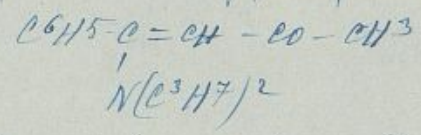 C⁶H5-C=CH-CO-CH³
N(C³H⁷)²